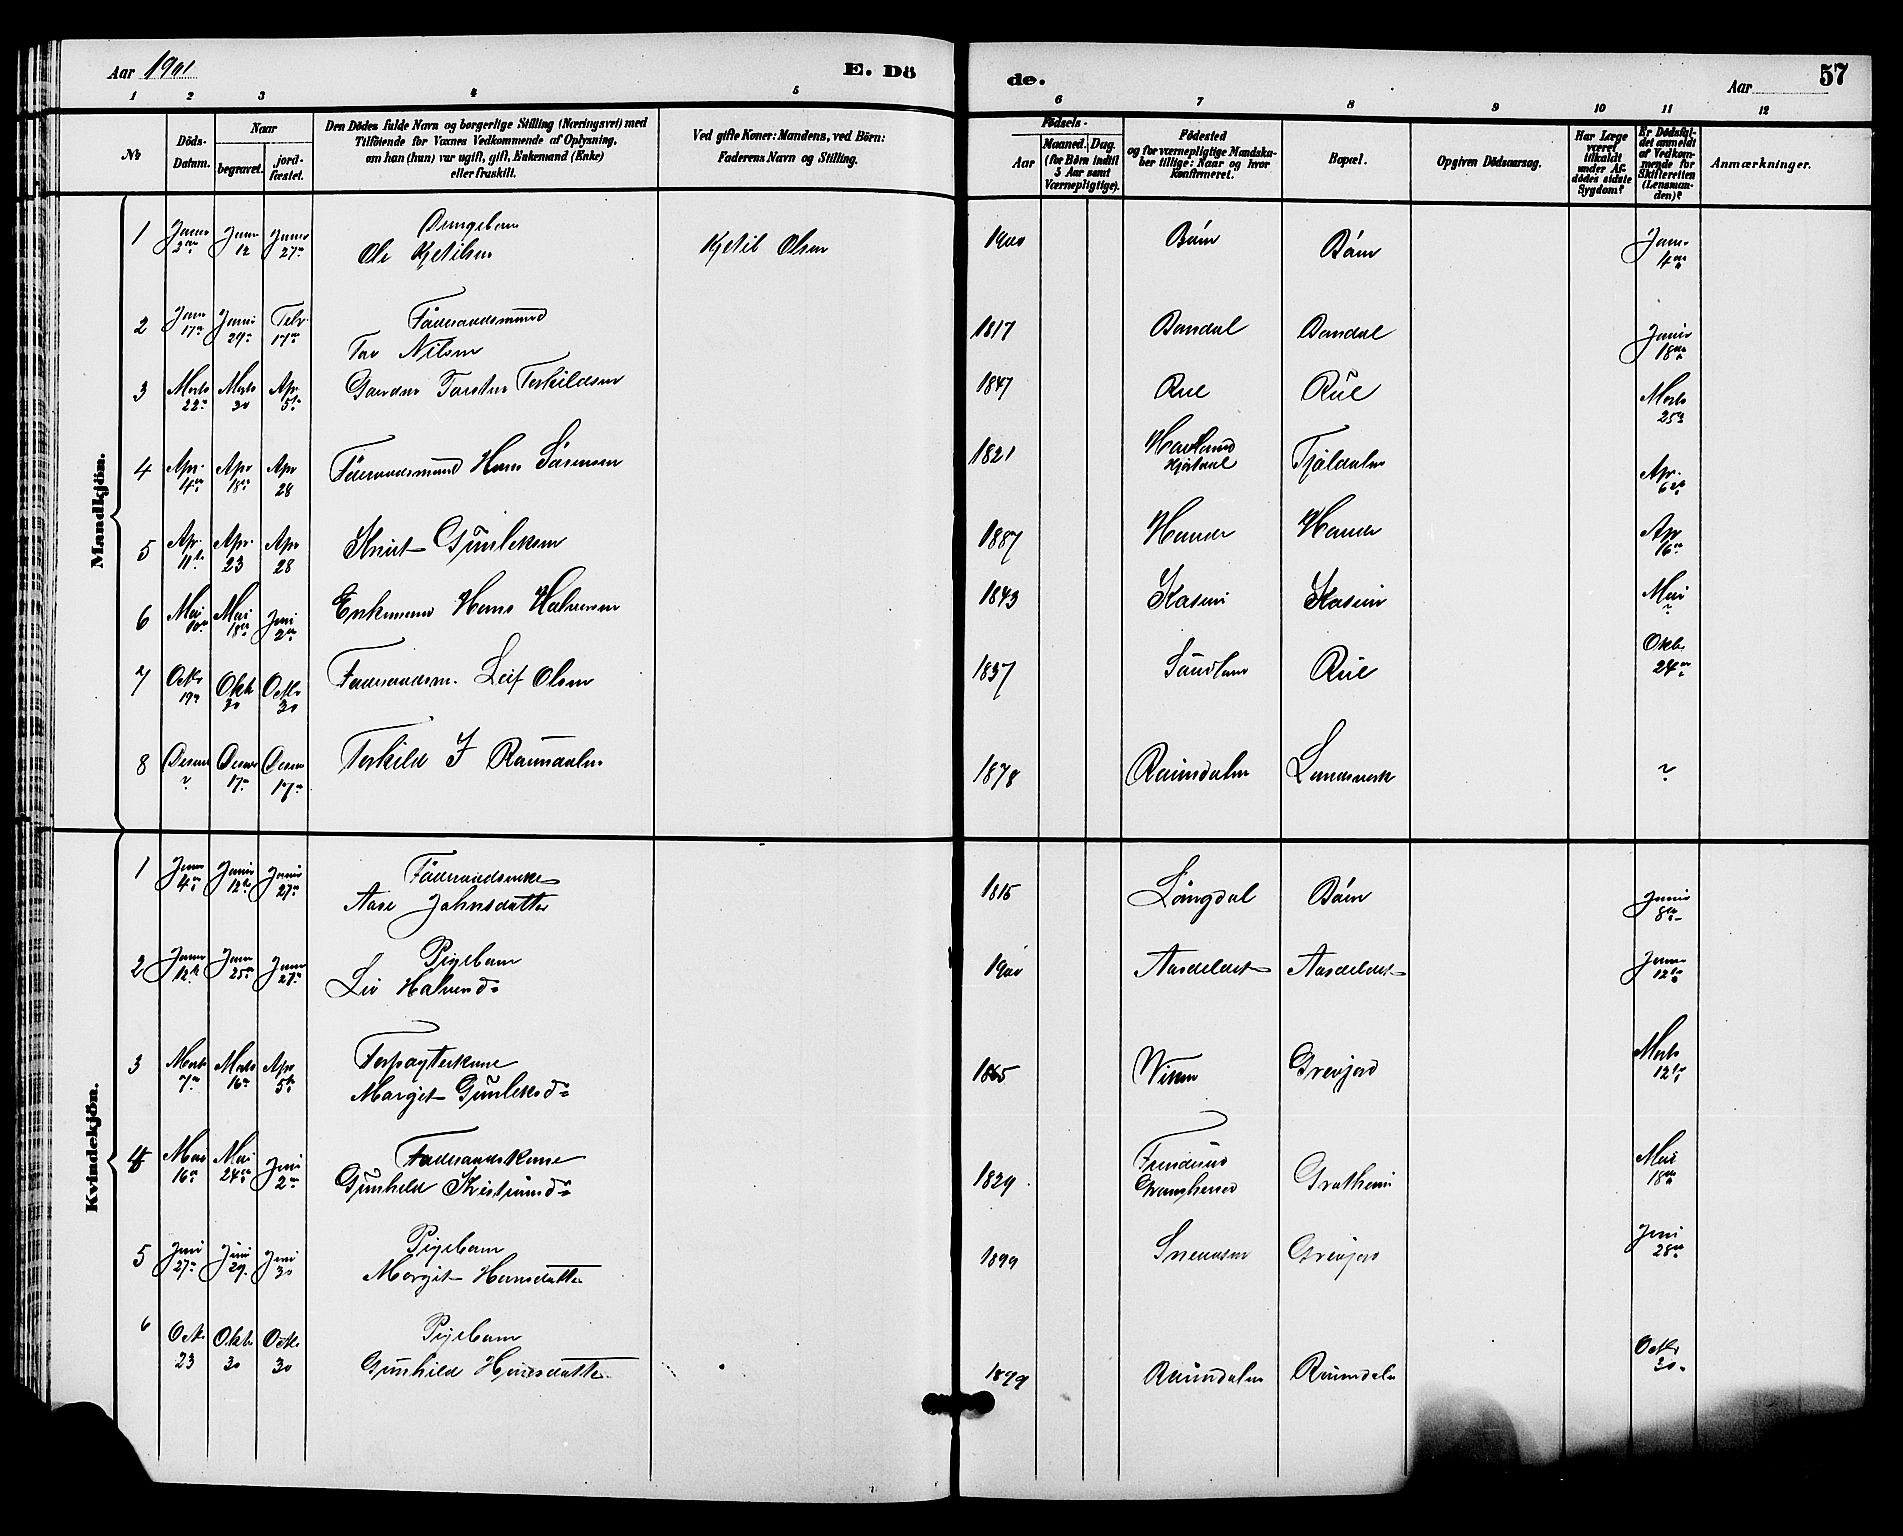 Aar 1901
E. Dö
de.
Aar
57
1 2 3 4 5 6 7 8 9 10 11 12
№
Döds-
Datum.
Naar
begravet.
jord-
fæstet.
Den Dödes fulde Navn og borgerlige Stilling (Næringsvei) med
Tilföiende for Voxnes Vedkommende af Oplysning,
om han (hun) var ugift, gift, Enkemand (Enke)
eller fraskilt.
Ved gifte Koner: Mandens, ved Börn:
Faderens Navn og Stilling.
Födsels-
Aar
Maaned.
Dag.
(for Börn indtil
5 Aar samt
Værnepligtige).
Födested
og for værnepligtige Mandska-
ber tillige: Naar og hvor
konfirmeret.
Bopæl.
Opgiven Dödsaarsag.
Har Læge
været
tilkaldt
under Af-
dödes sidste
Sygdom?
Er Dödsfal-
det anmeldt
af Vedkom-
mende for
Skifteretten
(Lensman-
den)?
Anmærkninger.
Mandkjön.
1 Janr 12 Janr 27 Drengebarn
Ole Kjetilsen Kjetil Olsen 1900 Böen Böen Janr 4
2 Janr 17 Janr 29 Febr 17 Föderaadsmand
Tov Nilsen 1817 Bondal Bondal Janr 18
3 Marts 22 Marts 30 Apr 5 Gaardm Torsten Terkildsen 1847 Rue Rue Marts 25
4 Apr. 4 Apr 18 Apr 28 Föderaadsmand Hans Sörensen 1821 Hjartdal Apr. 6
5 Apr. 11 Apr. 23 Apr 28 Knut Gunleksen 1887 Apr 16
6 Mai 10 Mai 18 Juni 2 Enkemand Hans Halvorsen 1843 Kasin Kasin Mai
7 Octr 19 Okt 30 Octr 30 Föderaadsm. Leif Olsen 1837 Rue Oktb 24
8 Decem Decem 17 Decem 17 Terkild J Raundalen 1878 Raundalen Landsverk
Kvindekjön.
1 Janr 4 Janr 12 Janr 27 Föderaadsenke
Aase Johnsdatter 1815 Löngdal Böen Janr 8
2 Janr 12 Janr 25 Janr 27 Pigebarn
Liv Halvorsd 1900 Aasdeldet Aasdeldet Janr 12
3 Marts 7 Marts 16 Apr 5 Forpagterkone
Margit Gunleksd 1865 Grevjord Marts 12
4 Mai 16 Mai 24 Juni 2 Föderaadskone
Gunhild Kristensd 1829 Gransherred Grotheim Mai 18
5 Juni 27 Juni 29. Juni 30 Pigebarn
Margit Hansdatter 1899 Grevjord Juni 28
6 Octr 23 Oktb 30 Octr 30 Pigebarn
Gunhild Hansdatter 1899 Raundalen Raundalen Octr 30